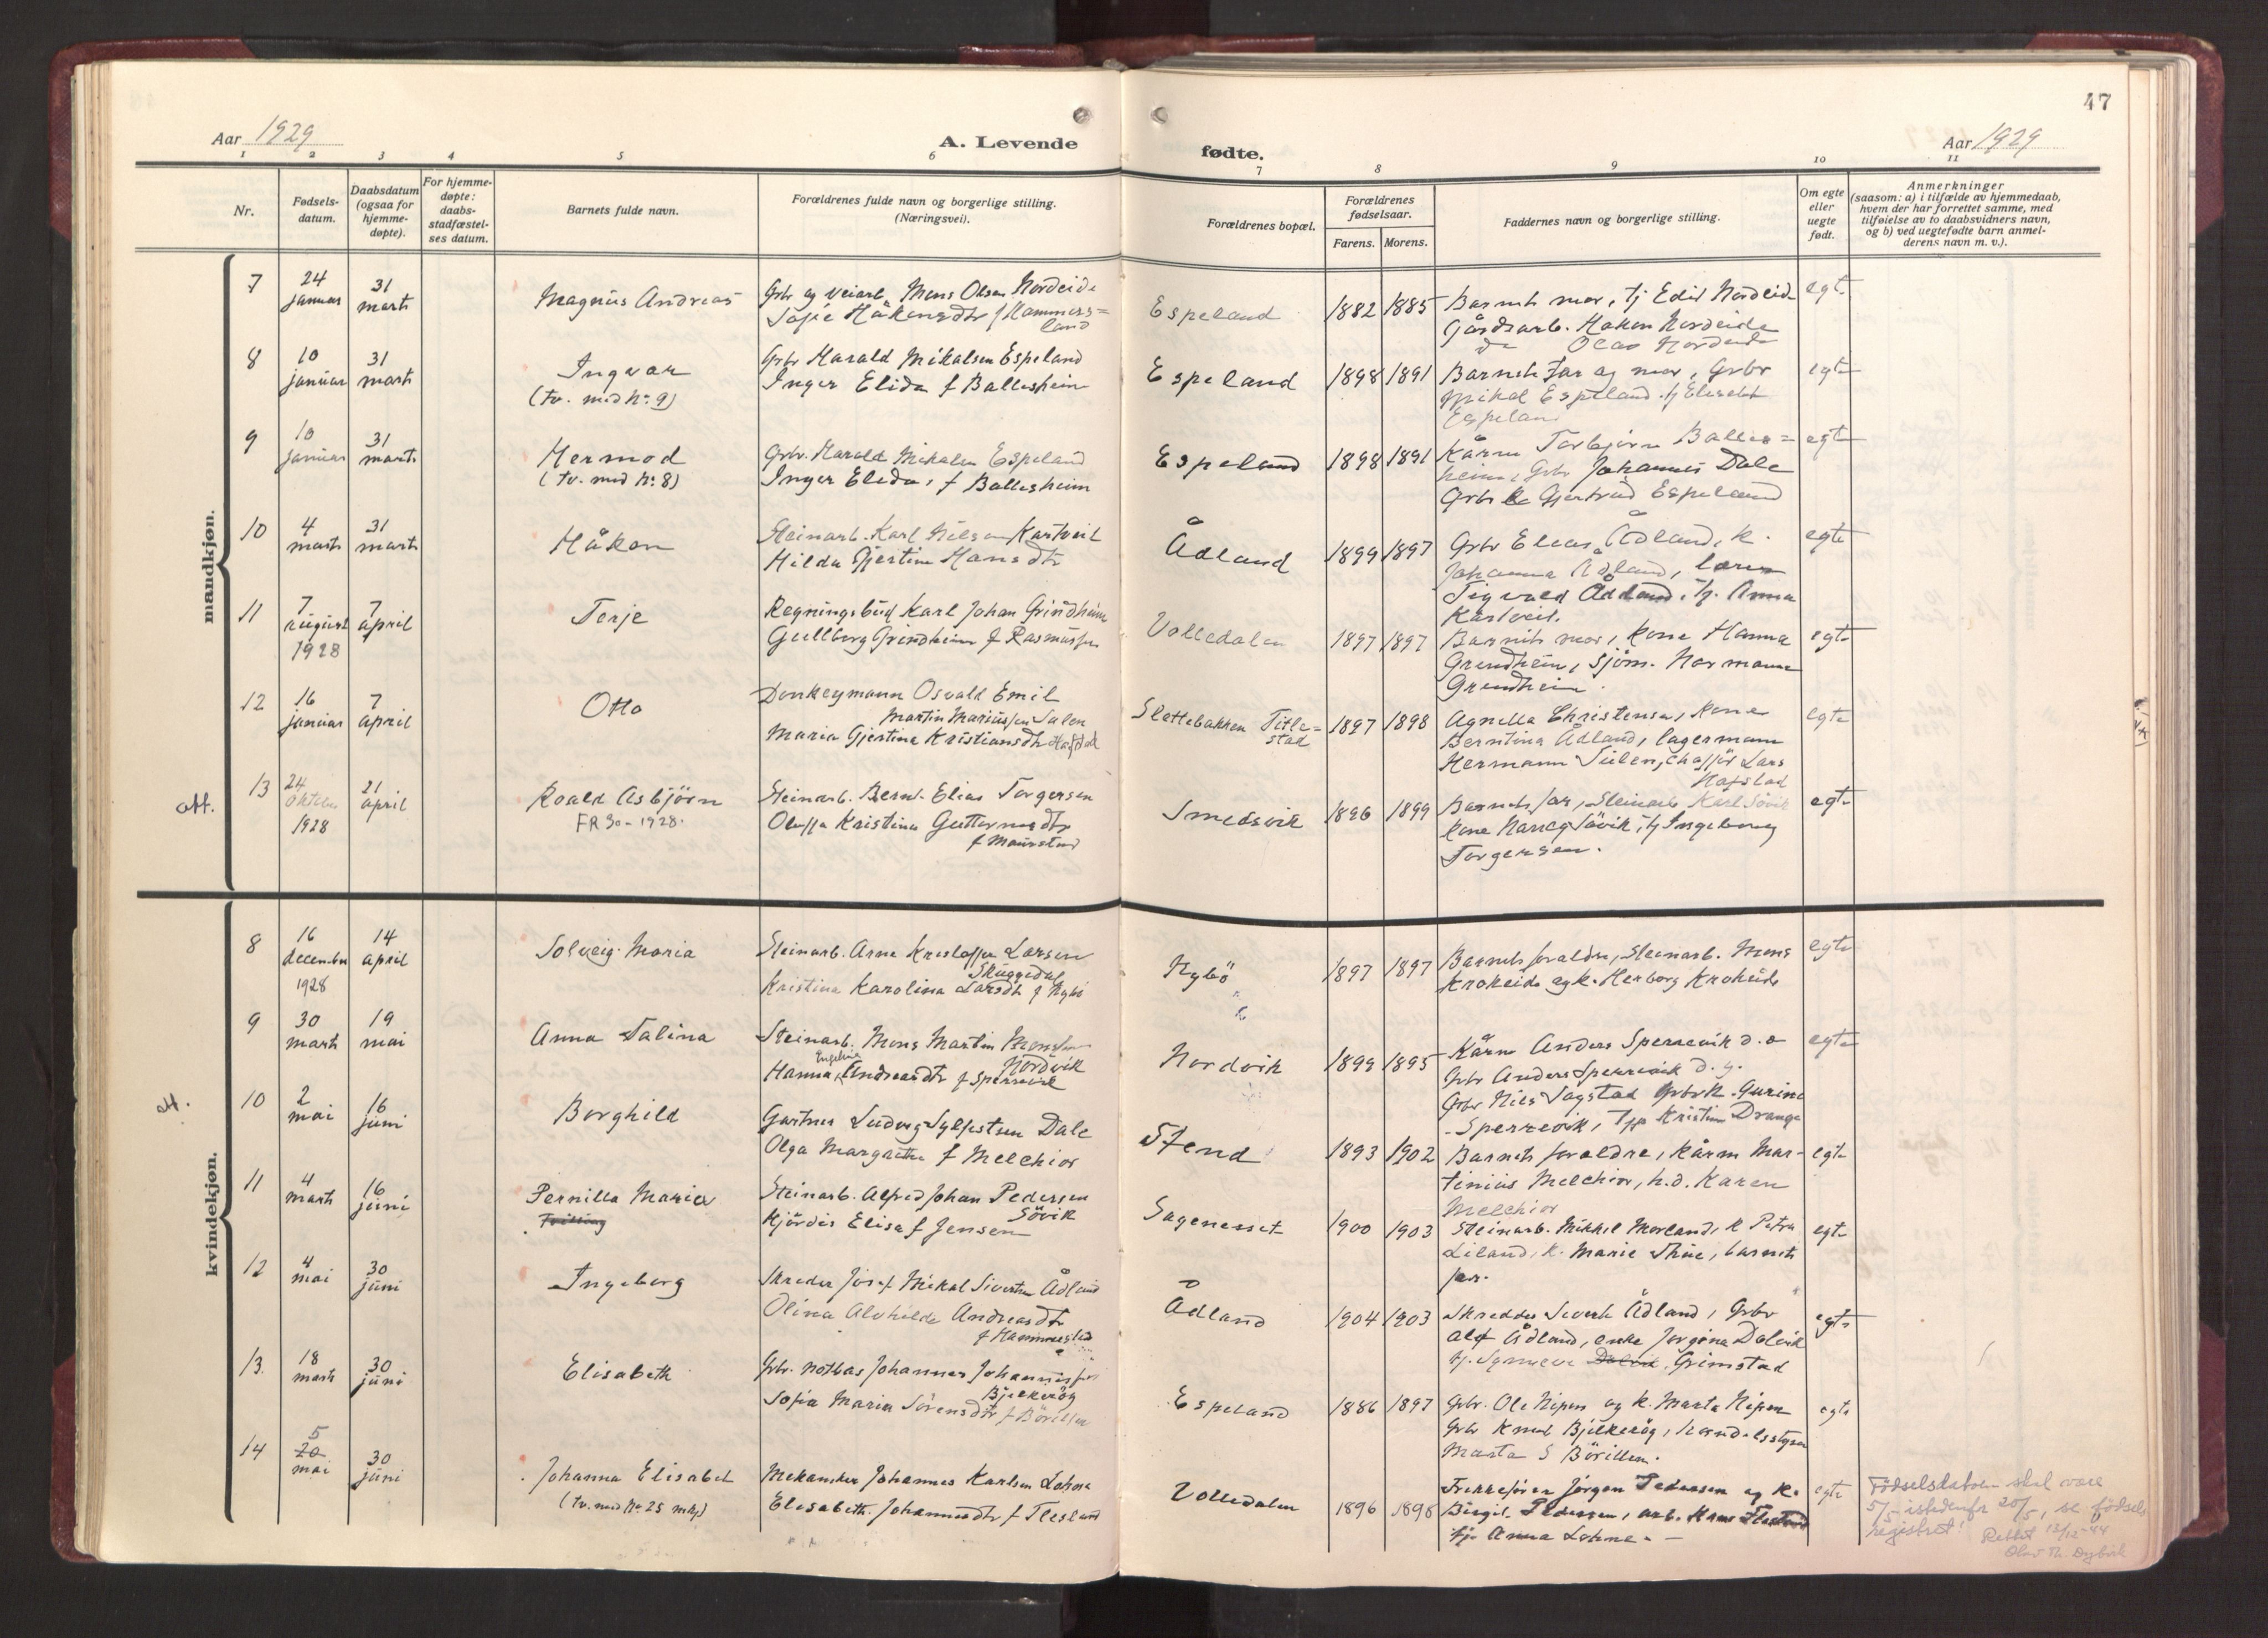 47
Aar 1929
A. Levende
fødte.
Aar 1929
1 2 3 4 5 6 7 8 9 10 11
Nr.
Fødsels-
datum.
Daabsdatum
(ogsaa for
hjemme-
døpte).
For hjemme-
døpte:
daabs-
stadfæstel-
ses datum.
Barnets fulde navn.
Forældrenes fulde navn og borgerlige stilling.
(Næringsvei).
Forældrenes bopæl.
Forældrenes
fødselsaar.
Farens. Morens.
Faddernes navn og borgerlige stilling.
Om egte
eller
uegte
født.
Anmerkninger
(saasom: a) i tilfælde av hjemmedaab,
hvem der har forrettet samme, med
tilføielse av to daabsvidners navn,
og b) ved uegtefødte barn anmel-
derens navn m. v.).
mandkjøn.
7
24
januar
31
marts
Magnus Andreas
Grbr og veiarb. Mons Olsen Nordeide
Sofie Håkonsdtr f Hammers=
land
Espeland
1882 1885
Barnets mor, tj Edit Nordeide
Gårdsarb. Håkon Nordeide
do Olav Nordeide
egte
8
10
januar
31
marts
Ingvar
(tv. med No 9)
Grbr Harald Mikalsen Espeland
Inger Elida f Ballesheim
Espeland
1898 1891
Barnets far og mor, Grbr
Mikal Espeland tj Elisabet
Espeland
egte
9
10
januar
31
marts
Hermod
(tv. med No 8)
Grbr. Harald Mikalsen Espeland
Inger Elida, f Ballesheim
Espeland
1898 1891
Kårm Torbjørn Balles=
heim, Grbr Johannes Dale
Grbr k Gjertrud Espeland
egte
10
4
marts
31
marts
Håkon
Steinarb. Karl Nilsen Kartveit
Hilda Gjertine Hansdtr
Ådland
1899 1897
Grbr Elias Ådland, k.
Johanna Ådland, lærer
Sigvald Ådland, tj. Anna
Kartveit.
egte
11
7
august
1928
7
april
Terje
Regningsbud Karl Johan Grindheim
Gullborg Grindheim f Rasmussen
Volledalen
1897 1897
Barnets mor, kone Hanna
Grindheim, Sjøm. Normann
Grindheim.
egte
12
16
januar
7
april
Otto
Donkeymann Osvald Emil
Martin Mariussen Sulen
Maria Gjertine Kristiansdtr Hafstad
Slettebakken Title=
stad
1897 1898
Agnella Christensen, kone
Berntina Ådland, lagermann
Hermann Sulen, chaffør Lars
Hafstad
egte
att.
13
24
oktober
1928
21
april
Roald Asbjørn
FR 30 - 1928.
Steinarb. Bernt Elias Torgersen
Oluffa Kristina Guttormsdtr
f Maurstad
Smedsvik
1896 1899
Barnets far, Steinarb Karl Søvik
kone Nancy Søvik, tj Ingeborg
Torgersen.
egte
kvindekjøn.
8
16
december
1928
14
april
Solveig Maria
Steinarb. Arne Kristoffer Larsen
Skuggedal
Kristine Karolina Larsdtr f Nybø
Nybø
1897 1897
Barnets foreldre, Steinarb. Mons
Krokeide og k. Herborg Krokeide
egte
9
30
marts
19
mai
Anna Talina
Steinarb. Mons Martin Monsen
Nordvik
Hanna Engelina Andreasdtr f Sperrevik
Nordvik
1899 1895
Kårm Anders Sperrevik d. e
Grbr Anders Sperrevik d. y.
Grbr Nils Sagstad Grbrk. Gurine
Sperrevik, Kristine Drange
egte
att.
10
2
mai
16
juni
Borghild
Gartner Ludvig Sylfestsen Dale
Olga Margrethe f Melchior
Stend
1893 1902
Barnets foreldre, Kårm Mar-
tinius Melchior, h.d. Karen
Melchior
egte
11
4
marts
16
juni
Pernilla Maria
Tvilling
Steinarb. Alfred Johan Pedersen
Søvik
Hjørdis Elisa f Jensen
Sagenesset
1900 1903
Steinarb. Mikkel Morland, k Petra
Liland, k. Marie Thue, barnets
far.
egte
12
4
mai
30
juni
Ingeborg
Skreder Josef Mikal Sivertsen Ådland
Olina Alvhilde Andreasdtr
f Hammersland
Ådland
1904 1903
Skredder Sivert Ådland, Grbr
Alf Ådland, enke Jørgina Dalvik
tj. Synneve Dalvik Grimstad
egte
13
18
marts
30
juni
Elisabeth
Grbr. notbas Johannes Johannessen
Bjelkerøy
Sofia Maria Sørensdtr f Børillen
Espeland
1886 1897
Grbr. Ole Nipen og k. Marta Nipen
Grbr Knut Bjelkerøy, handelsstyrer
Marta S Børillen.
egte
14
5
20
mai
30
juni
Johanna Elisabet
(tv. med No 25 mkj)
Mekaniker Johannes Karlsen Lohne
Elisabeth Johannesdtr f Flesland
Volledalen
1896 1898
Trikkefører Jørgen Pedersen og k.
Birgit Pedersen, arb. Hans Flesland
tj. Anna Lohne.
egte
Fødselsdatoen skal være
5/5 istedenfor 20/5, se fødsels
registret!
Rettet 13/12-44
Olav Th. Dybvik